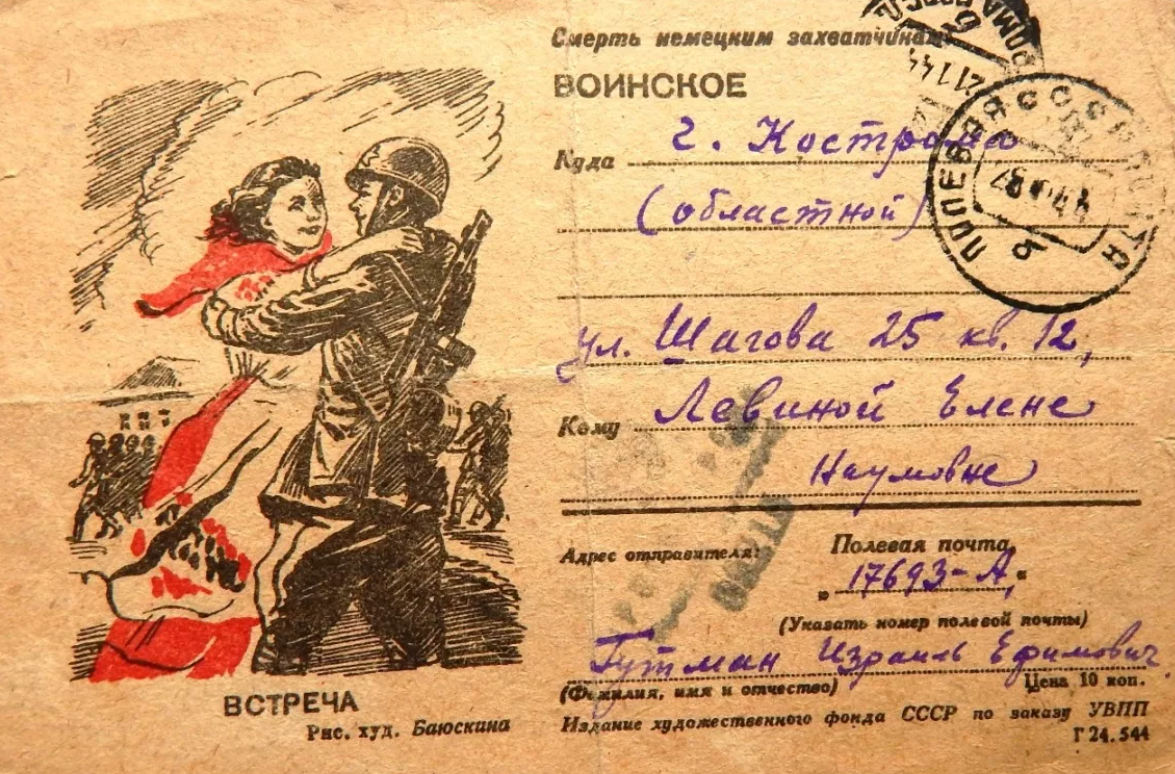 Смерть немецким захватчикам
ВОИНСКОЕ
Куда г. Кострома
(областной)
ул. Шагова 25 кв. 12,
Кому Левиной Елене
Наумовне
Адрес отправителя: Полевая почта
„ 17693-А, “
(Указать номер полевой почты)
Гутман Израиль Ефимович
(Фамилия, имя и отчество) Цена 10 коп.
Издание художественного фонда СССР по заказу УВПП
Г 24.544
ВСТРЕЧА
Рис. худ. Баюскина